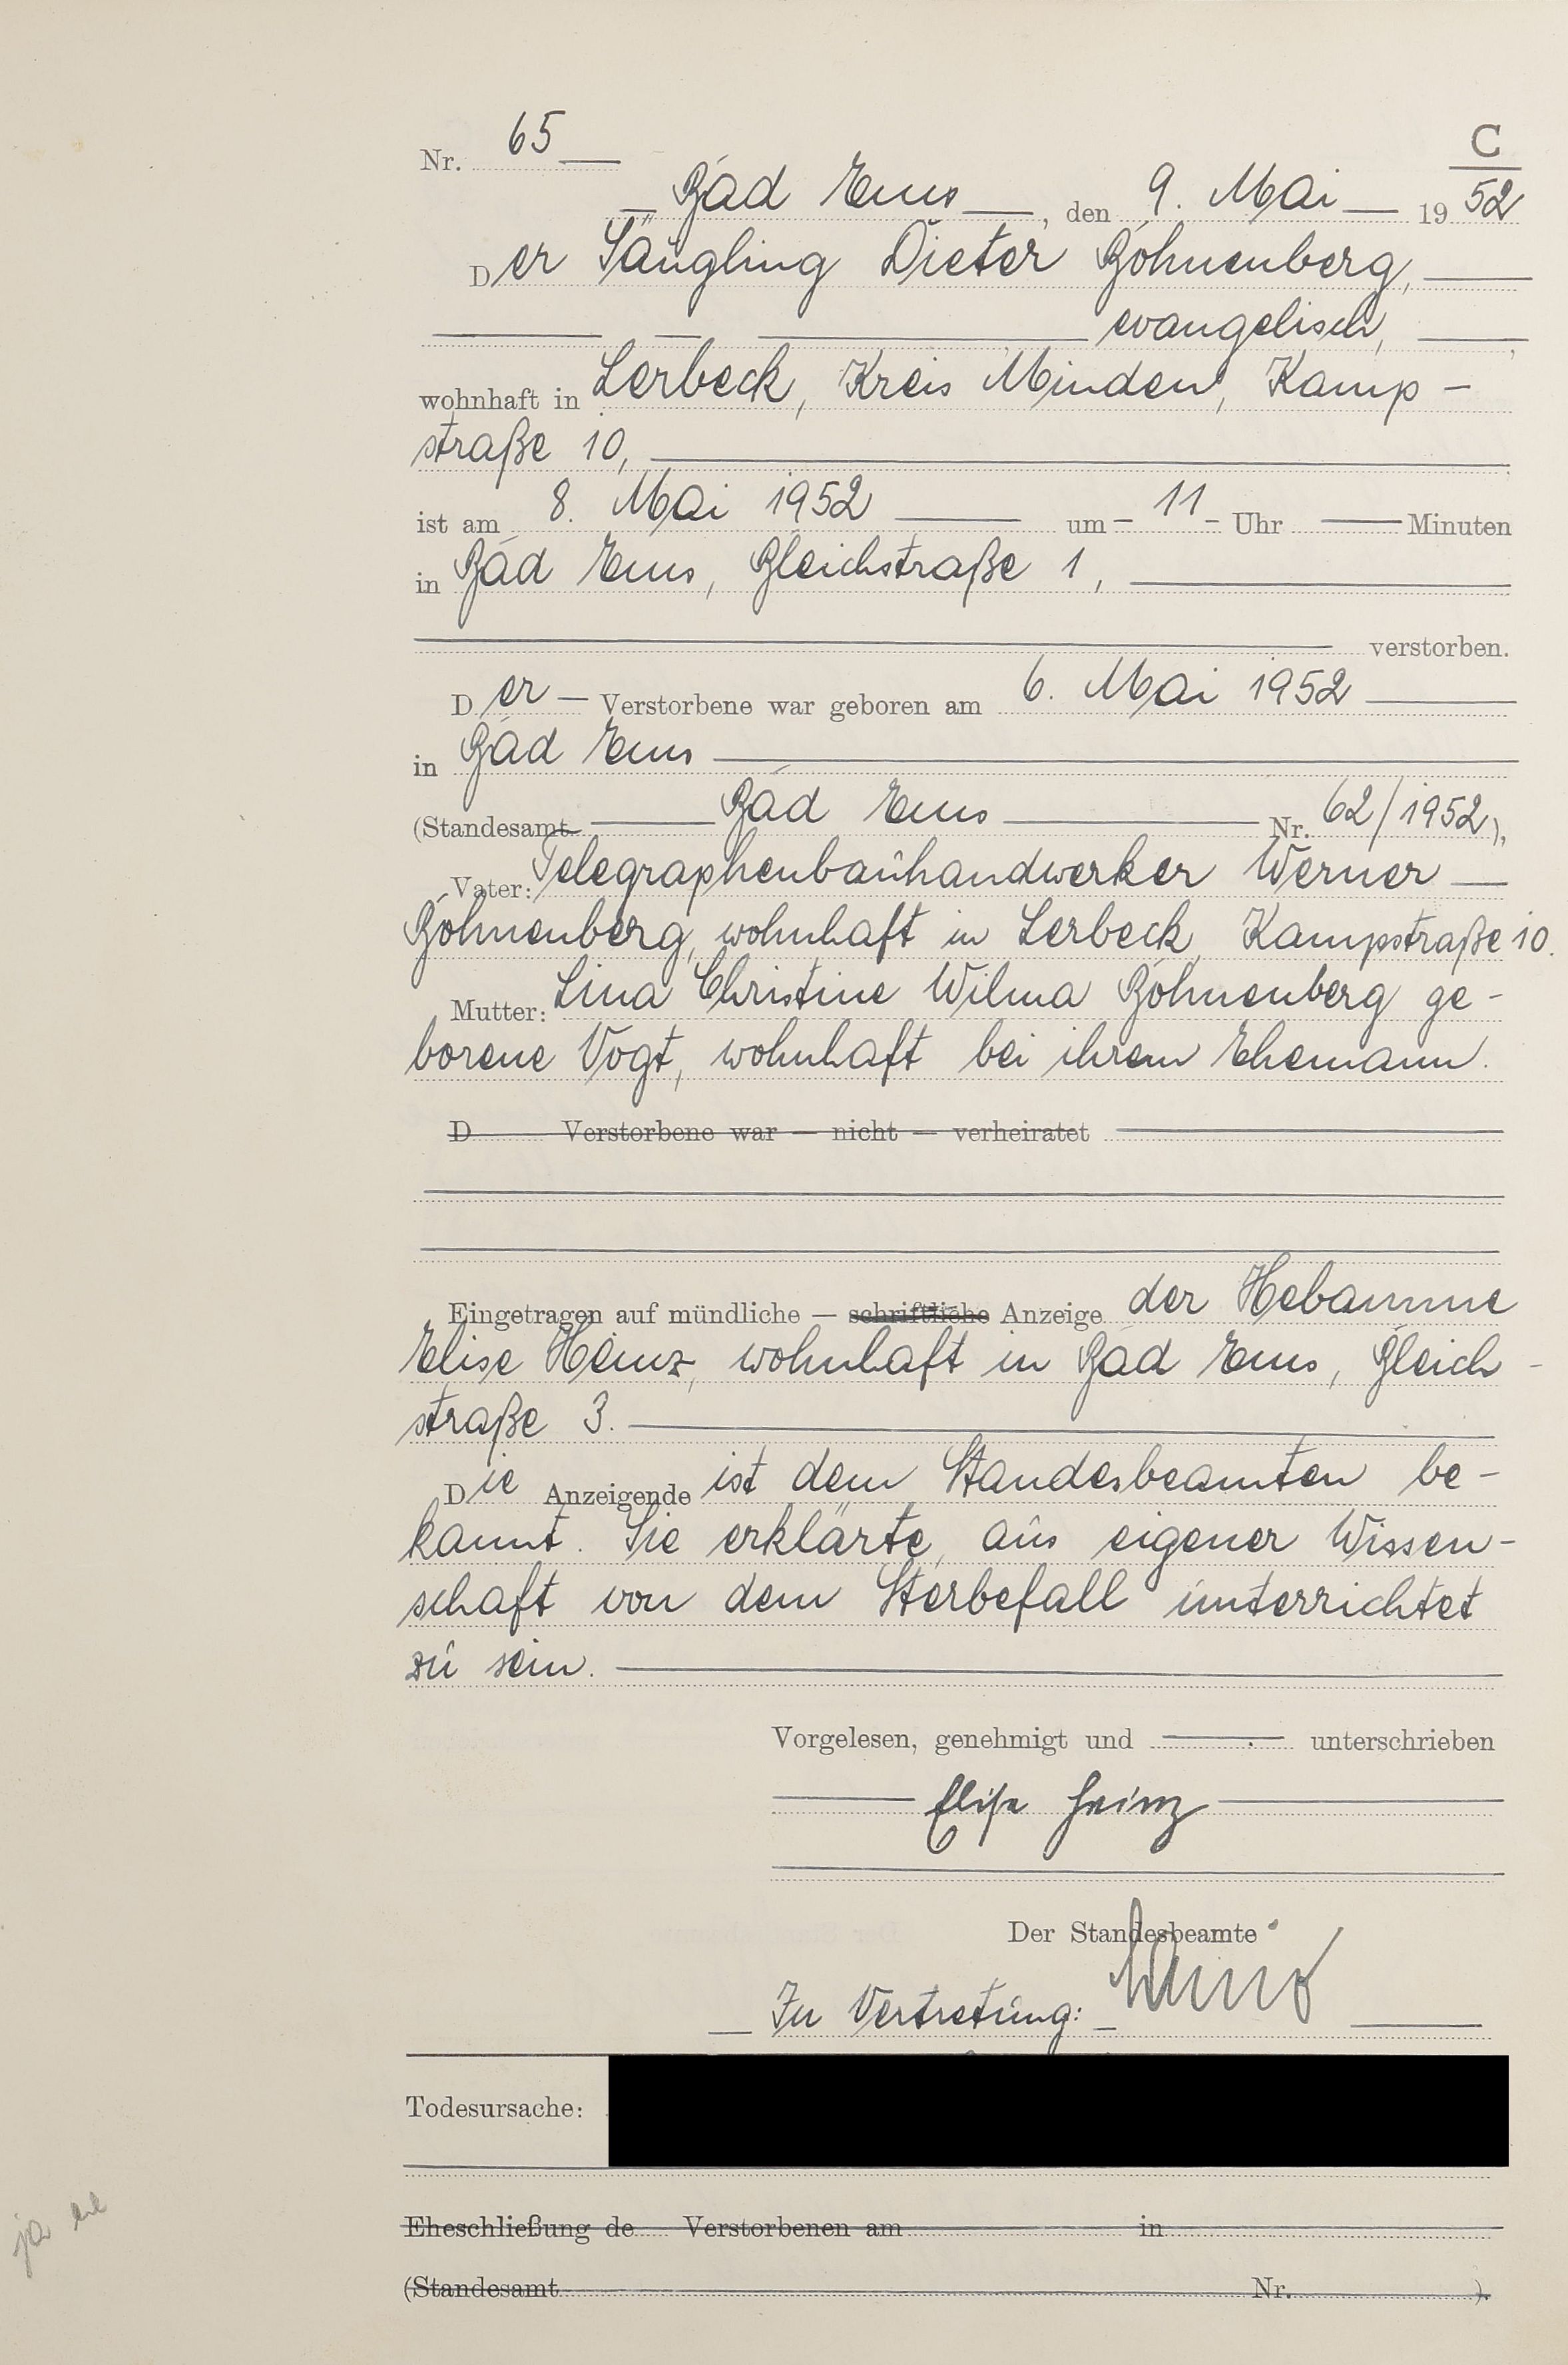 Nr. 65
C
Bad Ems, den 9. Mai 1952
Der Säugling Dieter Böhnenberg,
evangelisch,
wohnhaft in Lerbeck, Kreis Minden, Kamp-
straße 10,
ist am 8. Mai 1952 um 11 Uhr Minuten
in Bad Ems, Bleichstraße 1,
verstorben.
Der Verstorbene war geboren am 6. Mai 1952
in Bad Ems
(Standesamt Bad Ems Nr. 62/1952),
Vater: Telegraphenbauhandwerker Werner
Böhnenberg, wohnhaft in Lerbeck, Kampstraße 10.
Mutter: Lina Christine Wilma Böhnenberg ge-
borene Vogt, wohnhaft bei ihrem Ehemann.
D Verstorbene war — nicht — verheiratet
Eingetragen auf mündliche — schriftliche Anzeige der Hebamme
Elise Heinz, wohnhaft in Bad Ems, Bleich-
straße 3.
Die Anzeigende ist dem Standesbeamten be-
kannt. Sie erklärte, aus eigener Wissen-
schaft von dem Sterbefall unterrichtet
zu sein.
Vorgelesen, genehmigt und unterschrieben
Elise Heinz
Der Standesbeamte
In Vertretung:
Todesursache:
Eheschließung de Verstorbenen am in
(Standesamt Nr. ).